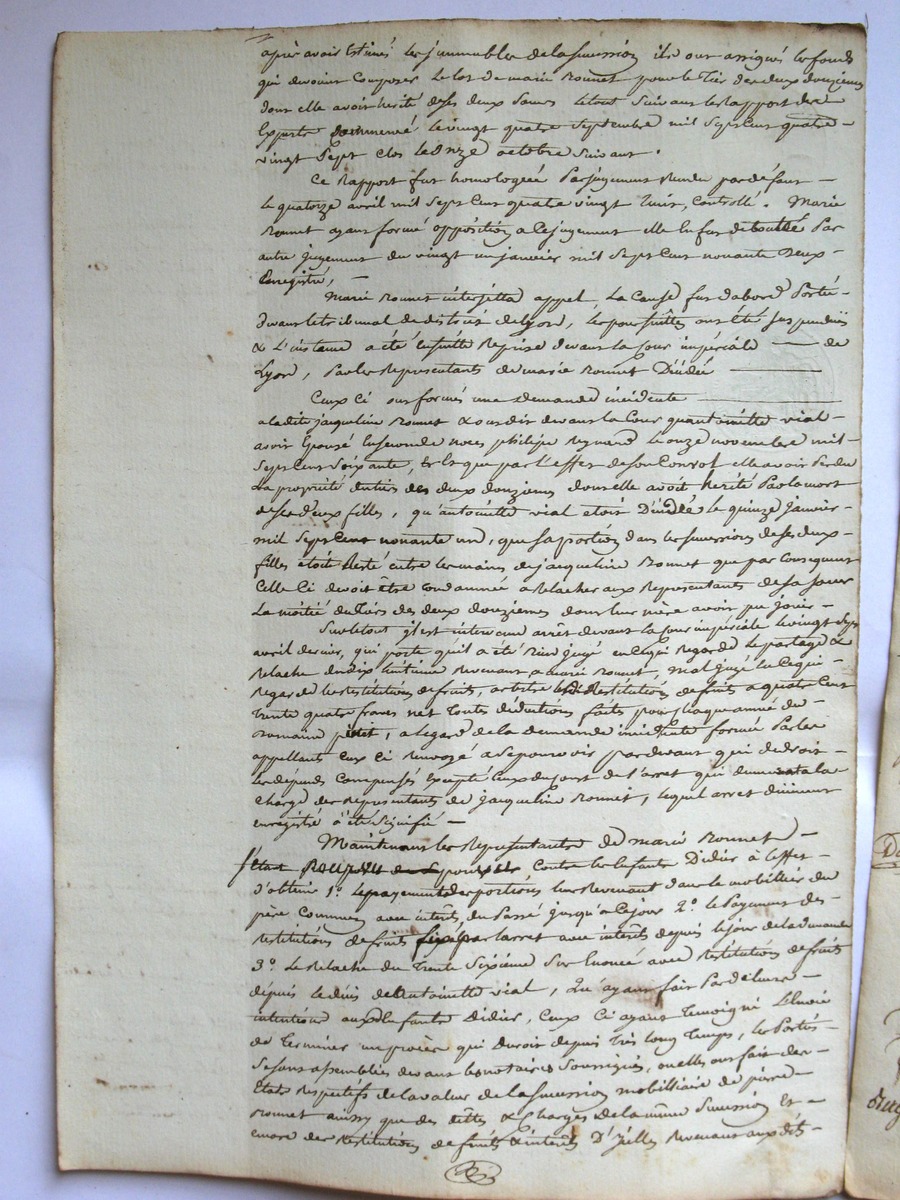 après avoir Estimés les jmmeubles de la suession ils ont assignés les fonds
qui devoint Composer le lot de marie Ronnet pour le tier des deux douziemes
dont elle avoit herité deses deux sœurs letout suivant le Rapport des
Experts Commencé levingt quatre septembre mil sept Cent quatre
vingt sept clos le Onze octobre suivant.
Ce Rapport fut homologué Par jugement Rendu par défaut
le quatorze avril mil sept Cent quatre vingt huit, Controllé. Marie
Ronnet ayant formé opposition a Cejugement elle En fut deboutté Par
autre jugement du vingt un janvier mil sept Cent nonante Deux
Enregistré,
Marie Ronnet interjetta appel, La Cause fut dabord Portée
devant le tribunal de district de Lyon, les poursuittes ont été suspendües
& L'instance a été Ensuitte Reprise devant la Cour impériale de
Lyon, Par les Représentants de marie Ronnet Décédée
Ceux Ci ont formés une demande incidente
a ladite jacqueline Ronnet & ont dit devant la Cour quantoinette vial
avoit Epousé En seconde noces philipe Reynard le onze novembre mil
sept Cent soixante, Et que par l'effet de son Convol elle avoit Perdu
La propriété du tiers des deux douziemes dont elle avoit herité Par la mort
de ses deux filles, qu'antoinette vial etoit Décédée le quinze janvier
mil sept Cent nonante un, que sa portion dans les successions de ses deux
filles étoit Resté entre les mains de jacqueline Ronnet que par Consequent
Celle Ci devoit être Condamnée a Relacher aux Représentants de sa sœur
La moitié du tiers des deux douziemes dont leur mère avoit pu jouir
Sur letout jl est intervenu arrêt devant la Cour impériale le vingt sept
avril dernier, qui porte qu'il a été Bien jugé en Cequi Regarde le partage &
Relache du dix huitieme Revenant a marie Ronnet, mal jugé En Cequi
Regarde les Restitutions de fruits, arbitre les Restitutions de fruits a quatre Cent
trente quatre francs net toutes déductions faites pour chaque année du
Romain pitet, a légard de la demande incidente formée Par les
appellants Eux Ci Renvoyé a se pourvoir pardevant qui de droit
les dépends Compensés Excepté Ceux du jour de l'arret qui demeurent a la
charge des Représentants de jacqueline Ronnet, lequel arret duement
enregistré à été signifié
Maintenant les Représentants de marie Ronnet
Contre les Enfants Didier à l'effet
d'obtenir 1.° le payement des portions leur Revenant dans le mobillier du
père Commun avec intérêts du Passé jusqu'à Cejour 2.° le Payement des
Restitutions de fruits fixé par larret avec intérêts depuis le jour de la demande
3.° le Relache du trente sixième sur Enoncé avec Restitution de fruits
dépuis le décès de antoinette vial, Qu'ayant fait Part de leurs
intentions aux Enfants Didier, Ceux Ci ayant temoigné l'Envie
de terminer un procès qui duroit depuis très long temps, les Parties
se sont assemblées devant les notaires soussignés, ou elles ont fait des
Etats Respectifs de la valeur de la suession mobilliaire de pierre
Ronnet aussy que des dettes & Charges de la même suession Et
encore des Restitutions de fruits & intérêts D'jcelles Revenant aux dits